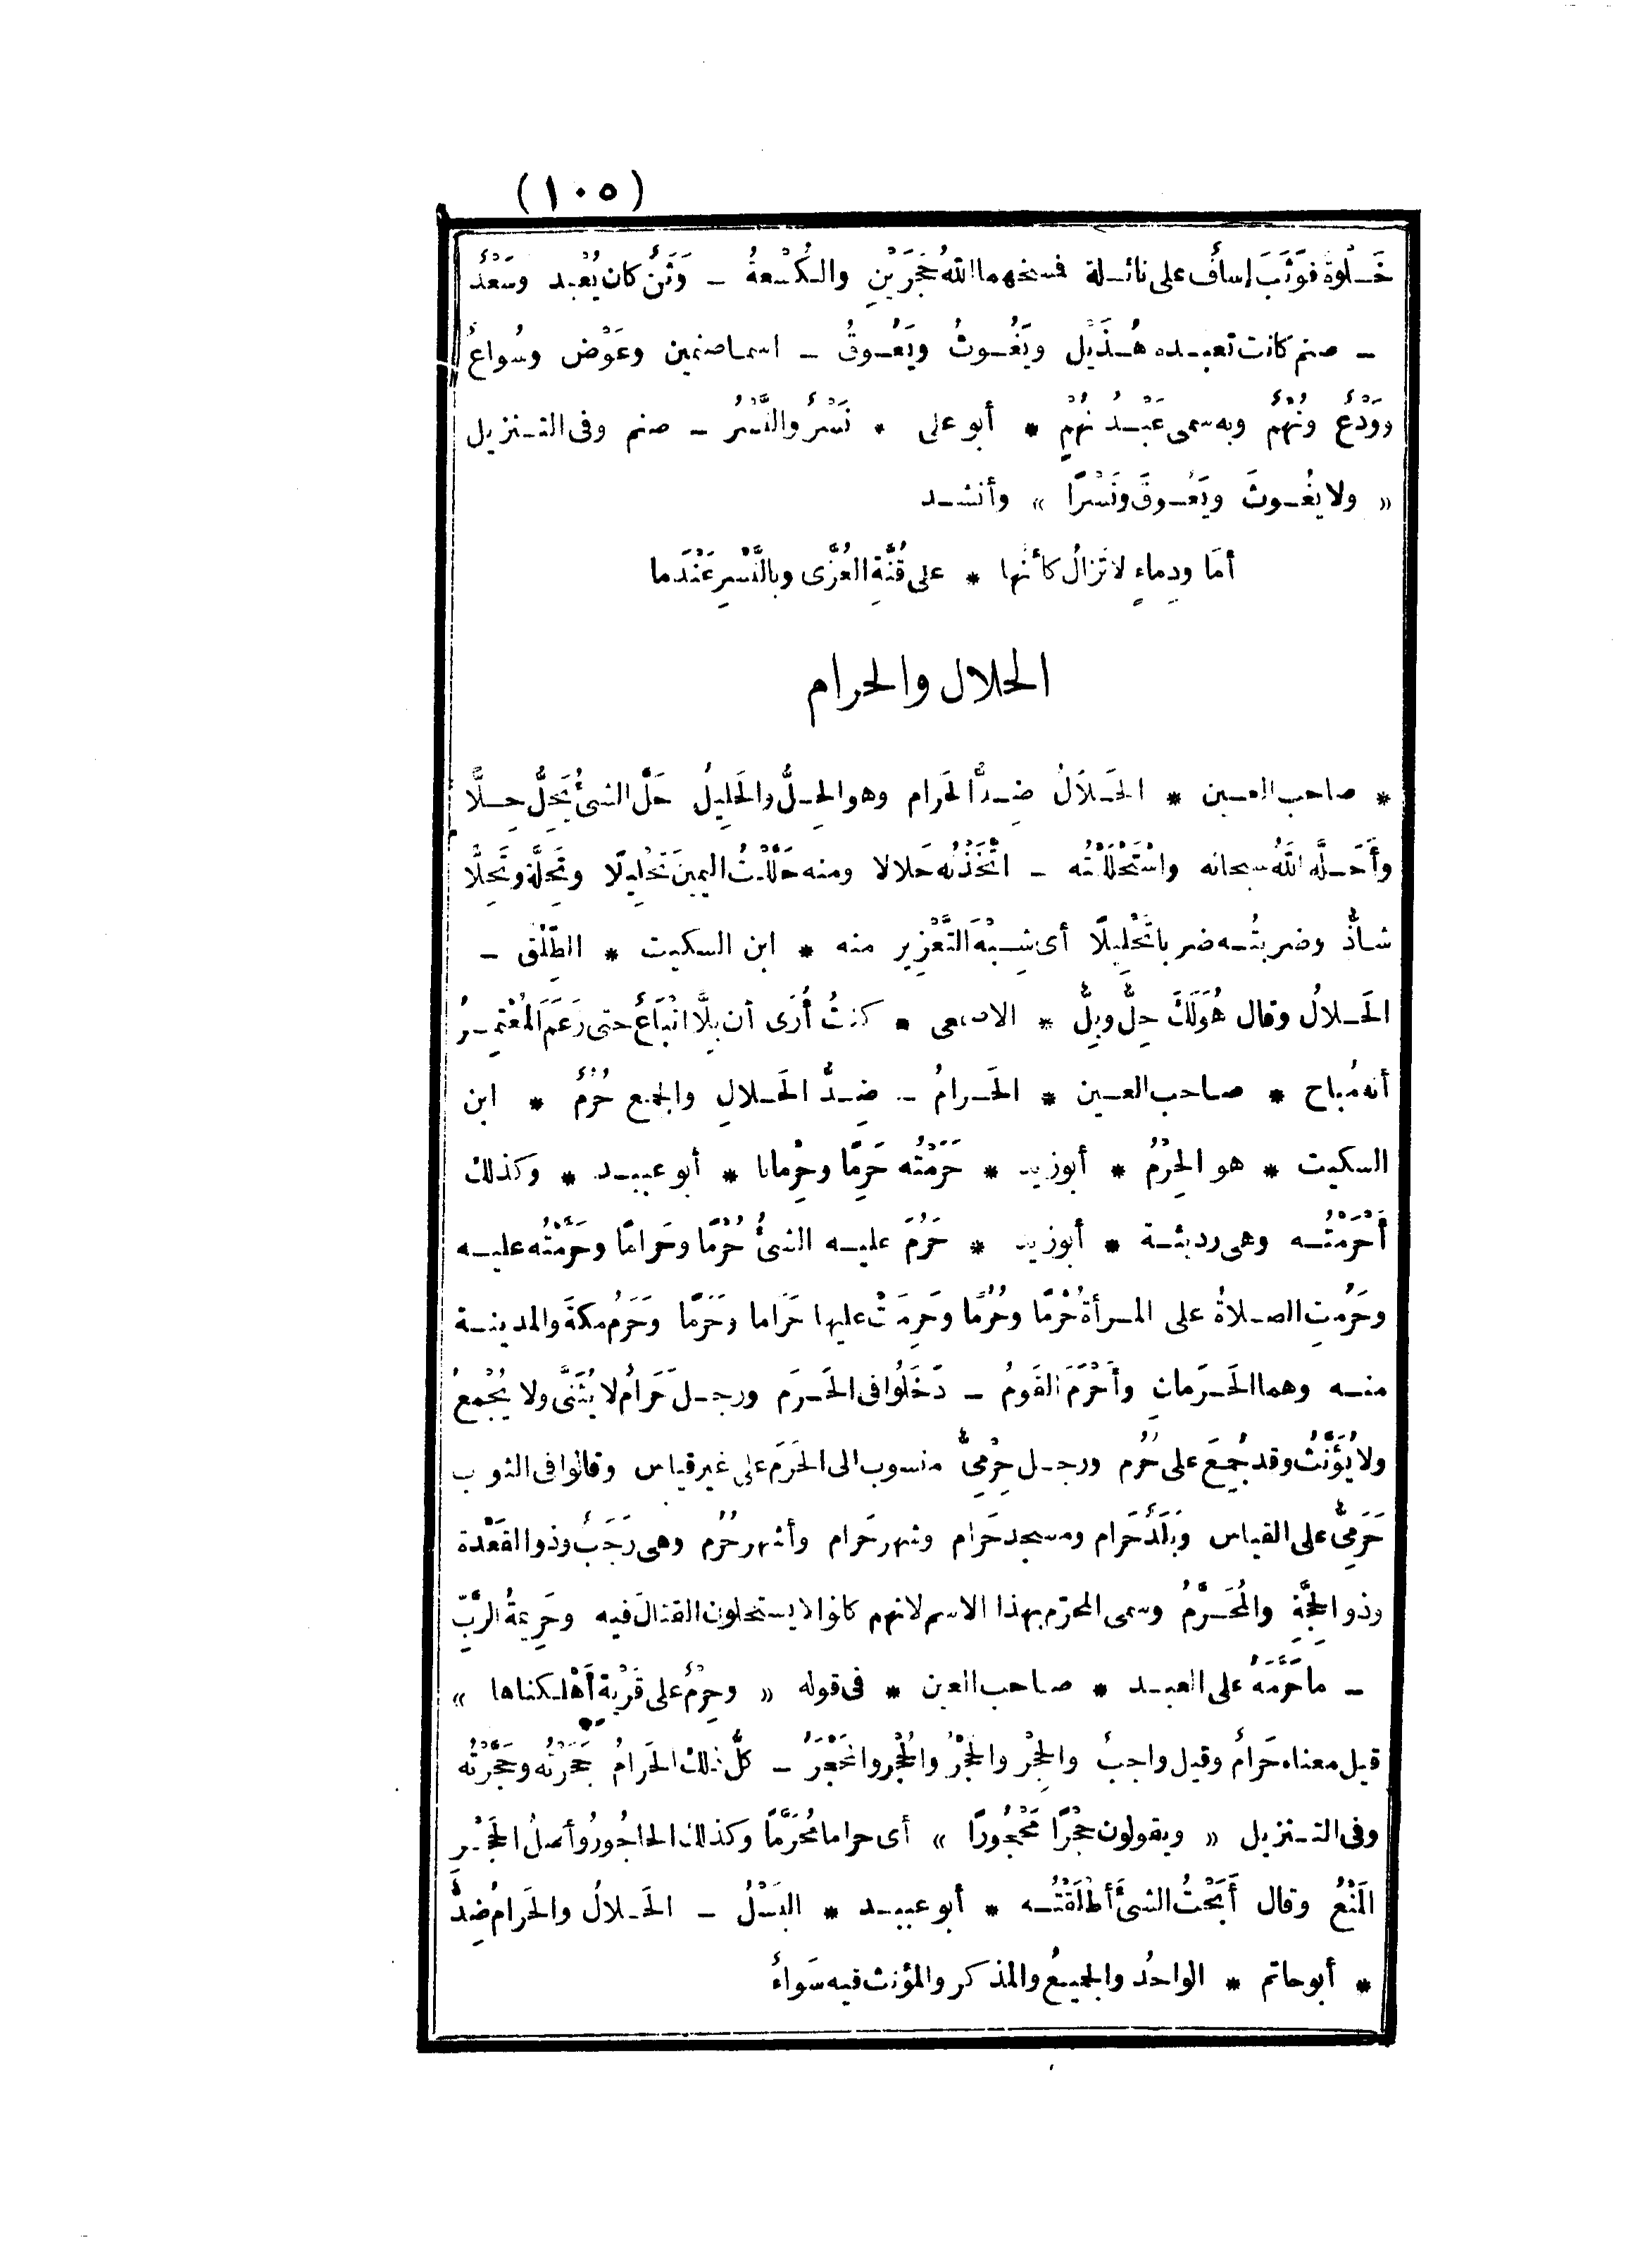 (١٠٥)
خَلْوةً فوَثَبَ إسافُ على نائلة فمسخهما اللهُ حَجَرَيْنِ والكُسْعةُ – وَثَنٌ كان يُعْبد وسَعْدٌ
– صنم كانت تعبده هُذَيْل ويَغُوثُ ويَعُوقُ – اسما صنمين وعَوْض وسُواعٌ
ووَدْعٌ ونُهْمٌ وبه سمى عَبْدُ نُهْمٍ * أبو على * نَسْرٌ والنَّسْرُ – صنم وفى التنزيل
« ولا يغُوثَ ويَعُوقَ ونَسْرًا » وأنشد
أمَا ودِماءٍ لا تَزالُ كأنَّها * على قُنَّةِ العُزَّى وبالنَّسْرِ عَنْدَما
الحلال والحرام
* صاحب العين * الحَلاَلُ ضِدُّ الحَرام وهو الحِلُّ والحَلِيلُ حَلَّ الشئُ يَحِلُّ حِلًّا
وأَحَلَّه اللهُ سبحانه واسْتَحْلَلْتُه – اتَّخَذْتُه حَلالا ومنه حَلَّلْتُ اليمينَ تَحْلِيلًا وتَحِلَّة وتَحِلًّا
شاذٌّ وضربتُه ضربا تَحْلِيلًا أى شِبْهَ التَّعْزِير منه * ابن السكيت * الطِّلْق –
الحَلالُ وقال هُوَ لَكَ حِلٌّ وبِلٌّ * الاصمعى * كنتُ أُرَى أن بِلًّا اتْبَاعٌ حتى زَعَمَ المُعْتَمِرُ
أنه مُباح * صاحب العين * الحَرامُ – ضِدُّ الحَلالِ والجمع حُرُمٌ * ابن
السكيت * هو الحِرْمُ * أبو زيد * حَرَمْتُه حَرِمًا وحِرْمانا * أبو عبيد * وكذلك
أَحْرَمْتُه وهى رديئة * أبو زيد * حَرُمَ عليه الشئُ حُرْمًا وحَرامًا وحَرَّمْتُه عليه
وحَرُمتِ الصلاةُ على المرأة حُرْمًا وحُرُمًا وحَرِمَتْ عليها حَرَاما وحَرَمًا وحَرَمُ مكةَ والمدينة
منه وهما الحَرَمانِ وأَحْرَمَ القَومُ – دَخَلُوا فى الحَرَم ورجل حَرَامٌ لا يُثَنَّى ولا يُجْمعُ
ولا يُؤَنَّثُ وقد جُمِعَ على حُرُم ورجل حِرْمِىٌّ منسوب الى الحَرَم على غير قياس وقالوا فى الثوب
حَرَمِىٌّ على القياس وبَلَدٌ حَرام ومسجد حَرَام وشهر حَرام وأشهر حُرُم وهى رَجَبٌ وذو القَعْدة
وذو الحِجَّةِ والمُحَرَّمُ وسمى المحرّم بهذا الاسم لانهم كانوا لا يستحلون القتالَ فيه وحَرِيمةُ الرَّبِّ
– ما حَرَّمَهُ على العبد * صاحب العين * فى قوله « وحِرْمٌ على قَرْيةٍ أَهْلكناها »
قيل معناه حَرامٌ وقيل واجبٌ والحِجْر والحَجْرُ والحُجْر والمَحْجَرُ – كلُّ ذلك الحَرامُ حَجَرْتُه وحَجَّرْتُه
وفى التنزيل « ويقولون حِجْرًا مَحْجُورًا » أى حراما مُحَرَّمًا وكذلك الحاجُورُ وأصلُ الحَجْر
المَنْعُ وقال أَبَحْتُ الشئَ أطْلَقْتُه * أبو عبيد * البَسْلُ – الحَلالُ والحَرامُ ضِدٌّ
* أبو حاتم * الواحدُ والجميعُ والمذكر والمؤنث فيه سَواءٌ